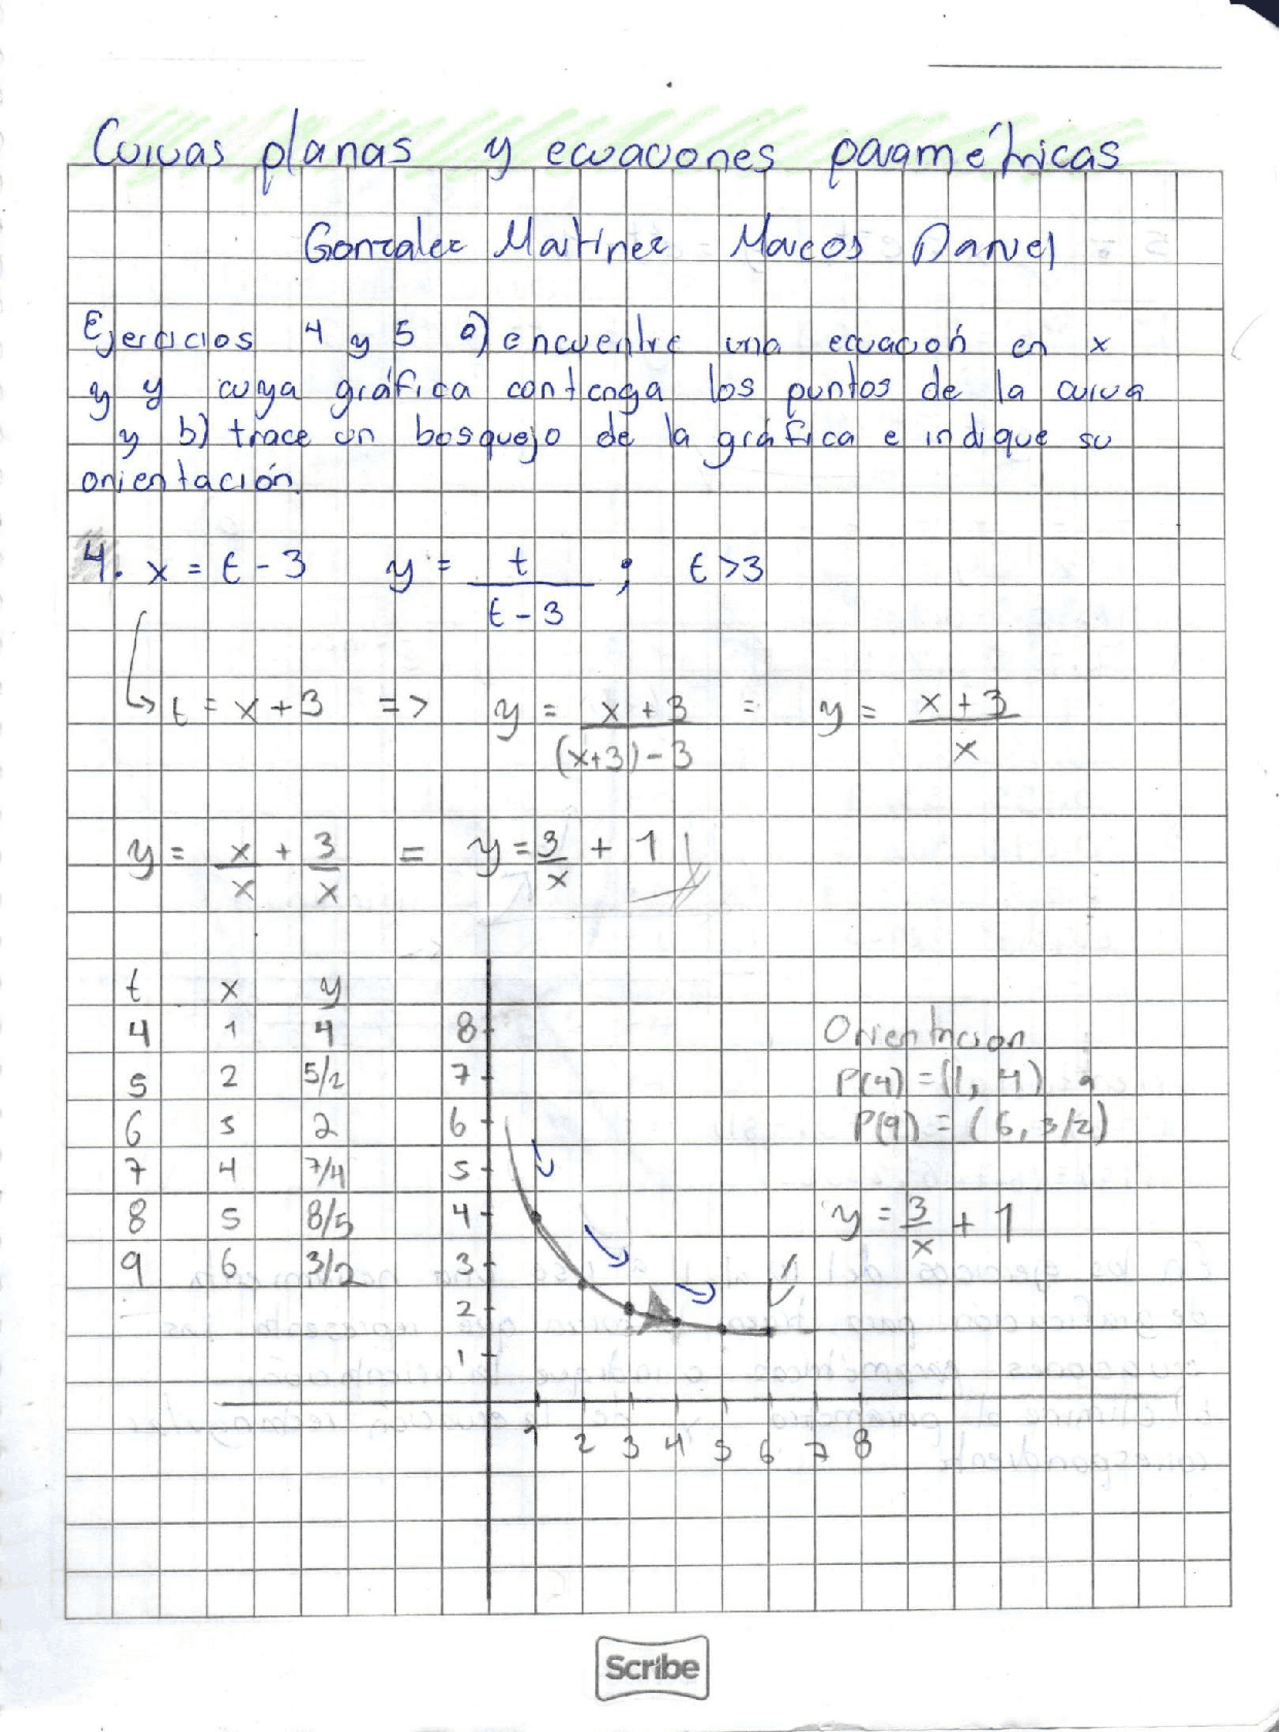 Curvas planas y ecuaciones paramétricas
Gonzalez Martinez Marcos Daniel
Ejercicios 4 y 5 a) encuentre una ecuación en x
y y cuya gráfica contenga los puntos de la curva
y b) trace un bosquejo de la gráfica e indique su
orientación.
4. x = t - 3 y = t / (t - 3) ; t > 3
t = x + 3 => y = (x + 3) / ((x+3) - 3) = y = (x + 3) / x
y = x/x + 3/x = y = 3/x + 1
t x y
4 1 4
5 2 5/2
6 3 2
7 4 7/4
8 5 8/5
9 6 3/2
8
7
6
5
4
3
2
1
1 2 3 4 5 6 7 8
Orientacion
P(4) = (1, 4) a
P(9) = (6, 3/2)
y = 3/x + 1
Scribe